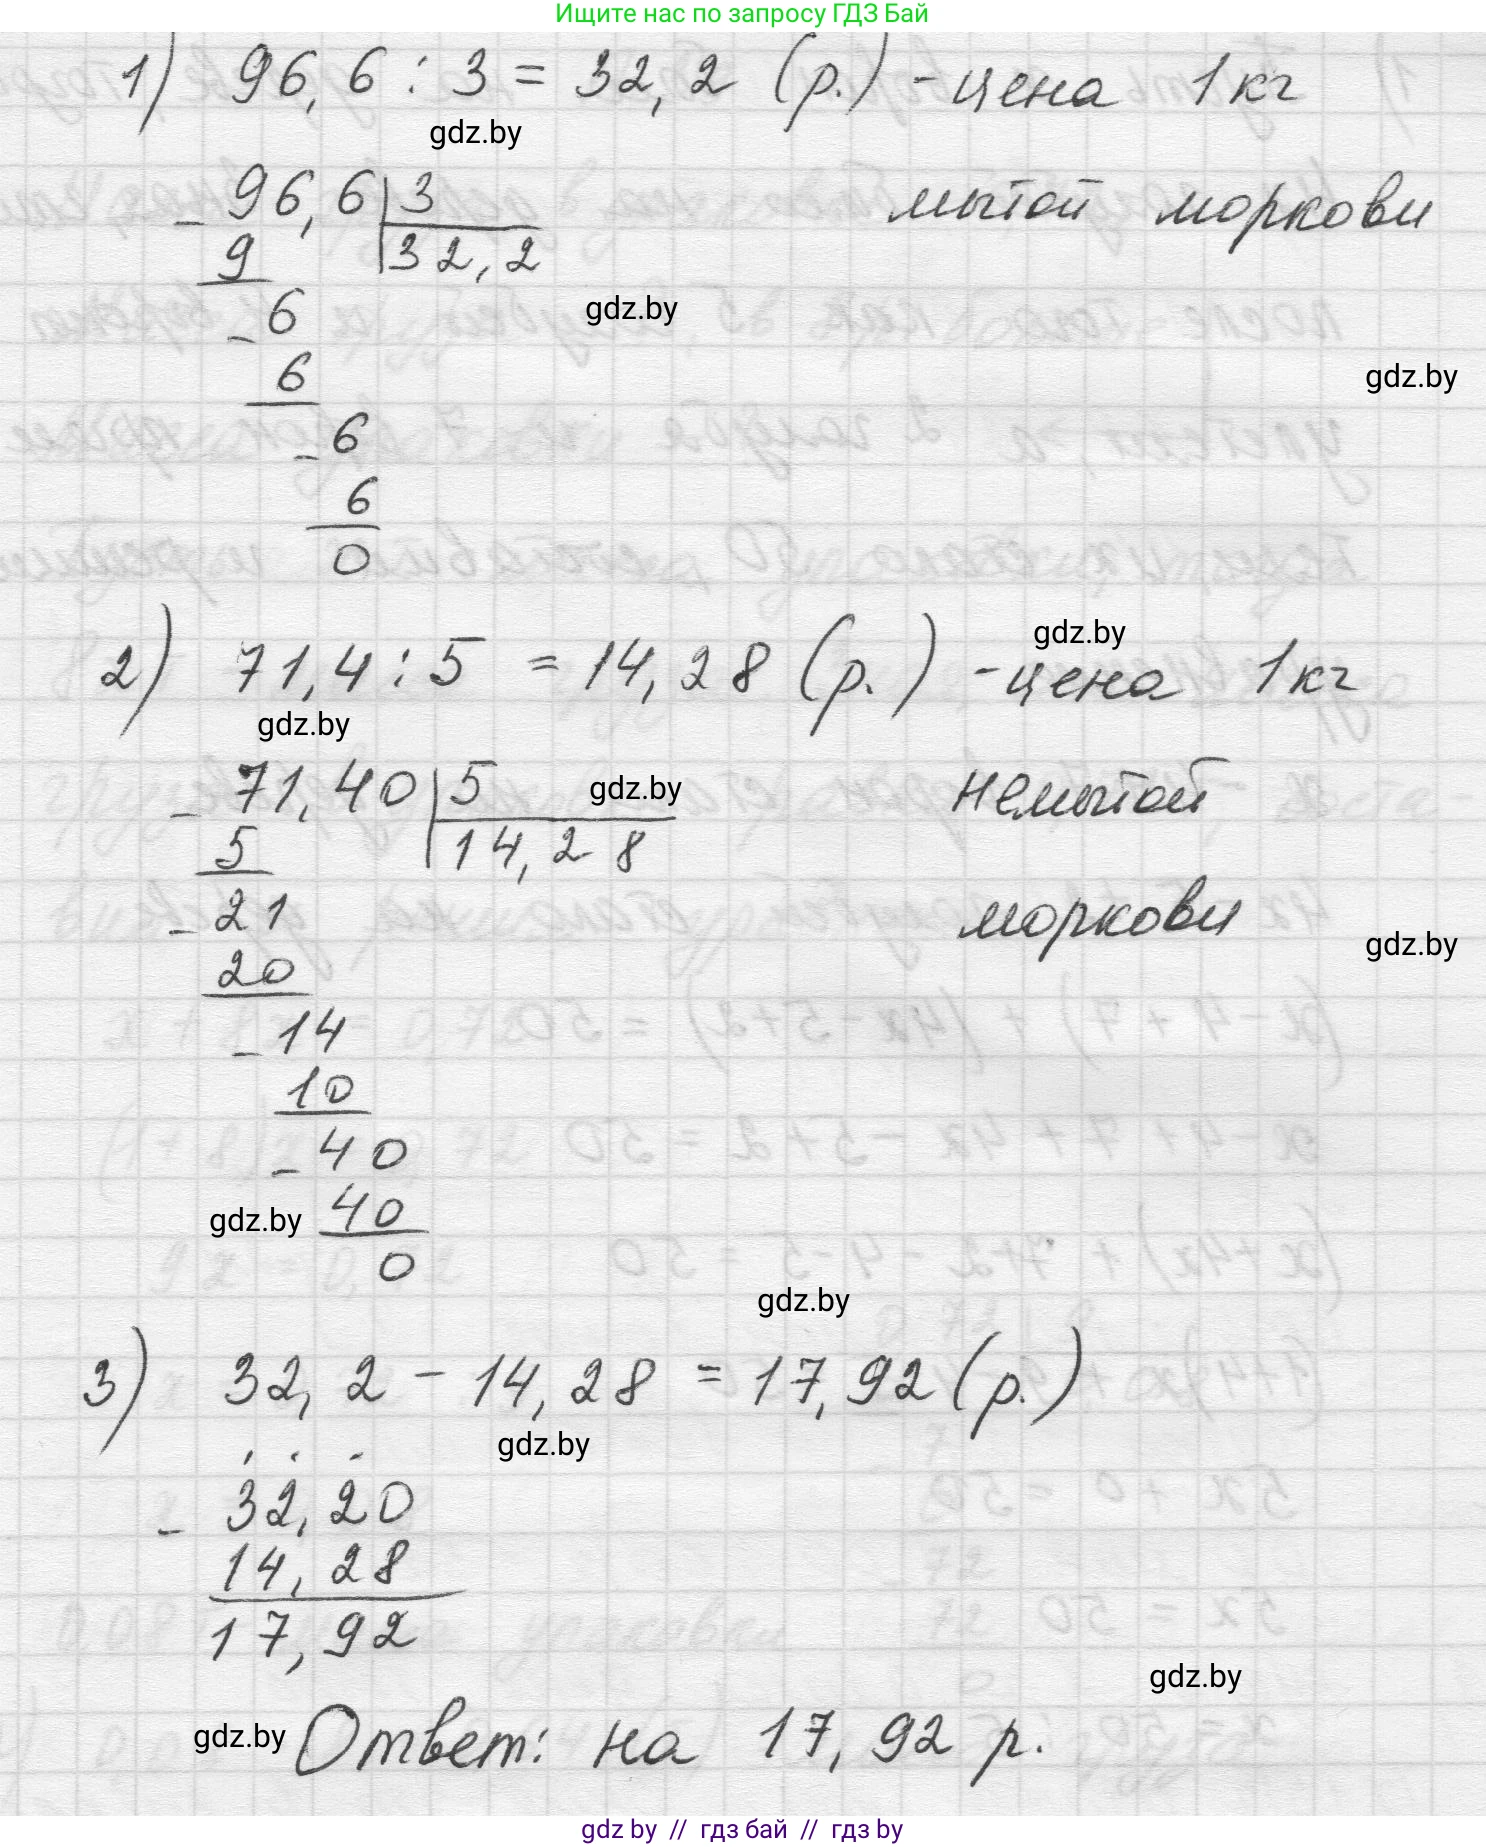 Ищите нас по запросу ГДЗ Бай
1) 96,6 : 3 = 32,2 (р.) - цена 1кг
gdz.by
мытой моркови
- 96,6 | 3
9 | 32,2
gdz.by
- 6
gdz.by
6
- 6
6
0
gdz.by
2) 71,4 : 5 = 14,28 (р.) - цена 1кг
gdz.by
- 71,40 | 5
gdz.by
немытой
5 | 14,28
- 21
моркови
gdz.by
20
- 14
10
- 40
gdz.by
40
0
gdz.by
3) 32,2 - 14,28 = 17,92 (р.)
gdz.by
- 32,20
14,28
17,92
gdz.by
gdz.by
Ответ: на 17,92 р.
gdz by // гдз бай // гдз by